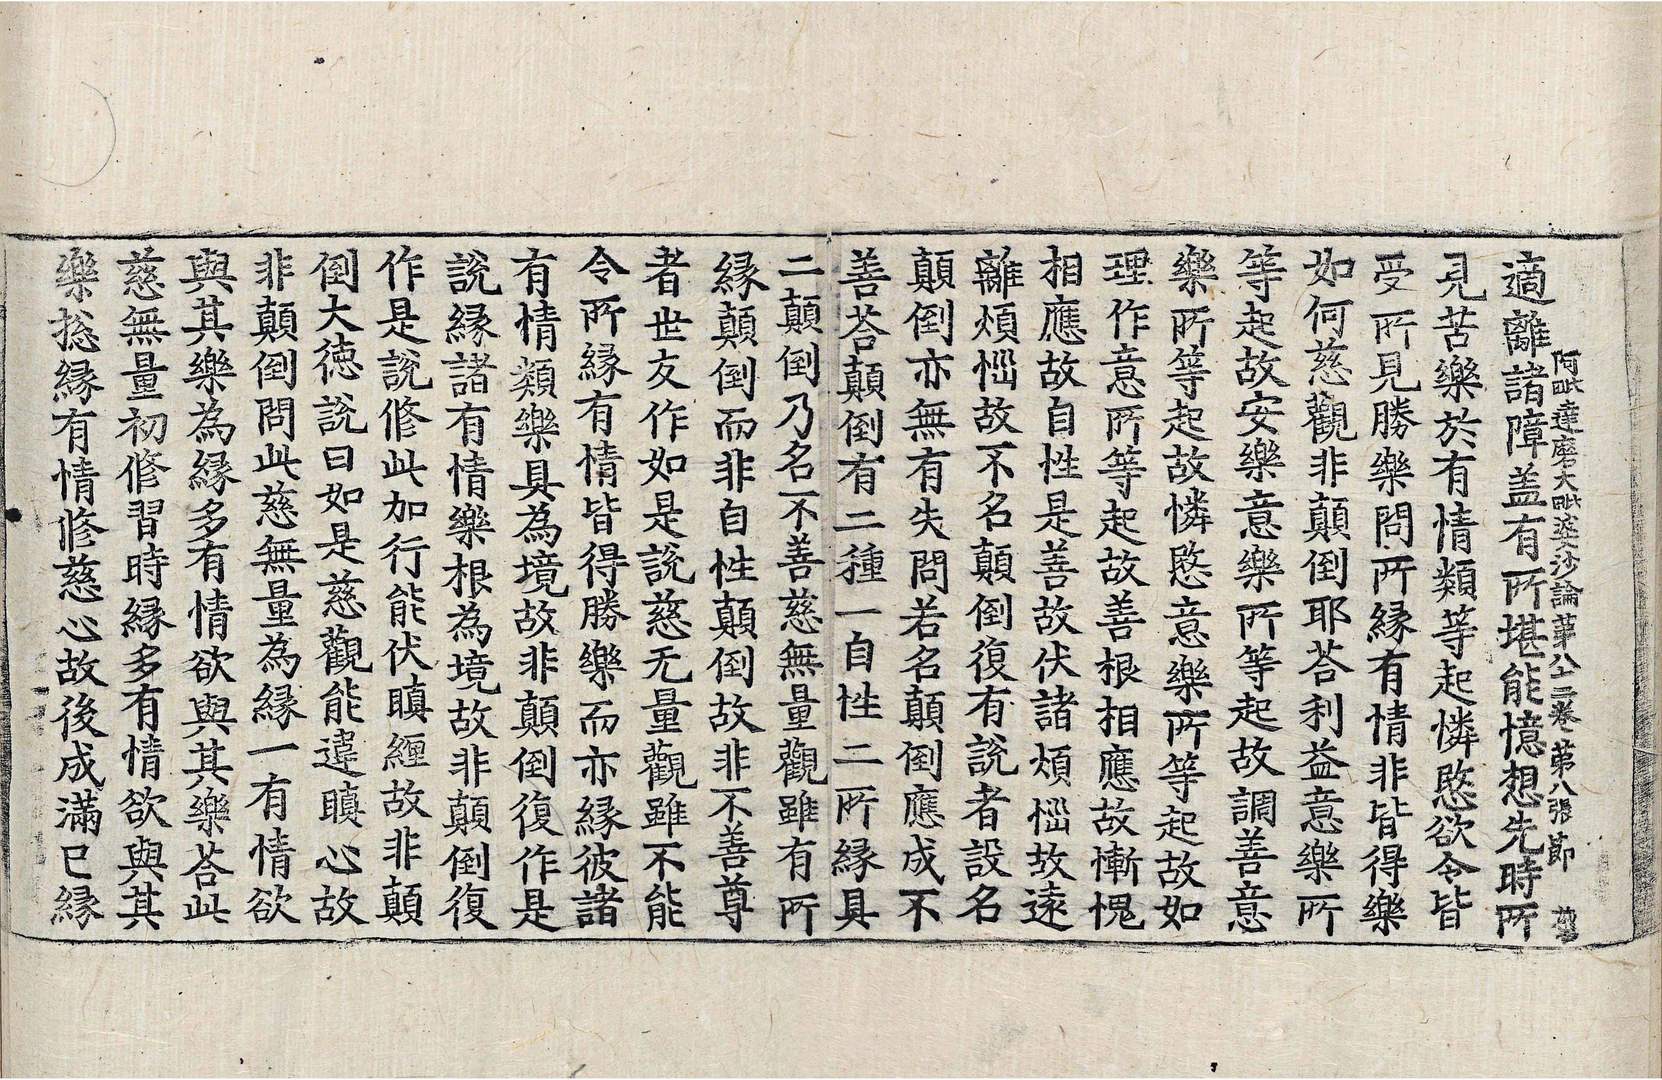 阿毗達磨大毗婆沙論第八十二卷 第八張 節
適離諸障盖有所堪能憶想先時所
見苦樂於有情類等起憐愍欲令皆
受所見勝樂問所縁有情非皆得樂
如何慈觀非顛倒耶荅利益意樂所
等起故安樂意樂所等起故調善意
樂所等起故憐愍意樂所等起故如
理作意所等起故善根相應故慚愧
相應故自性是善故伏諸煩惱故遠
離煩惱故不名顛倒復有說者設名
顛倒亦無有失問若名顛倒應成不
善荅顛倒有二種一自性二所縁具
二顛倒乃名不善慈無量觀雖有所
縁顛倒而非自性顛倒故非不善尊
者世友作如是說慈无量觀雖不能
令所縁有情皆得勝樂而亦縁彼諸
有情類樂具為境故非顛倒復作是
說縁諸有情樂根為境故非顛倒復
作是說修此加行能伏瞋纒故非顛
倒大徳說曰如是慈觀能違瞋心故
非顛倒問此慈無量為縁一有情欲
與其樂為縁多有情欲與其樂荅此
慈無量初修習時縁多有情欲與其
樂捴縁有情修慈心故後成滿已縁